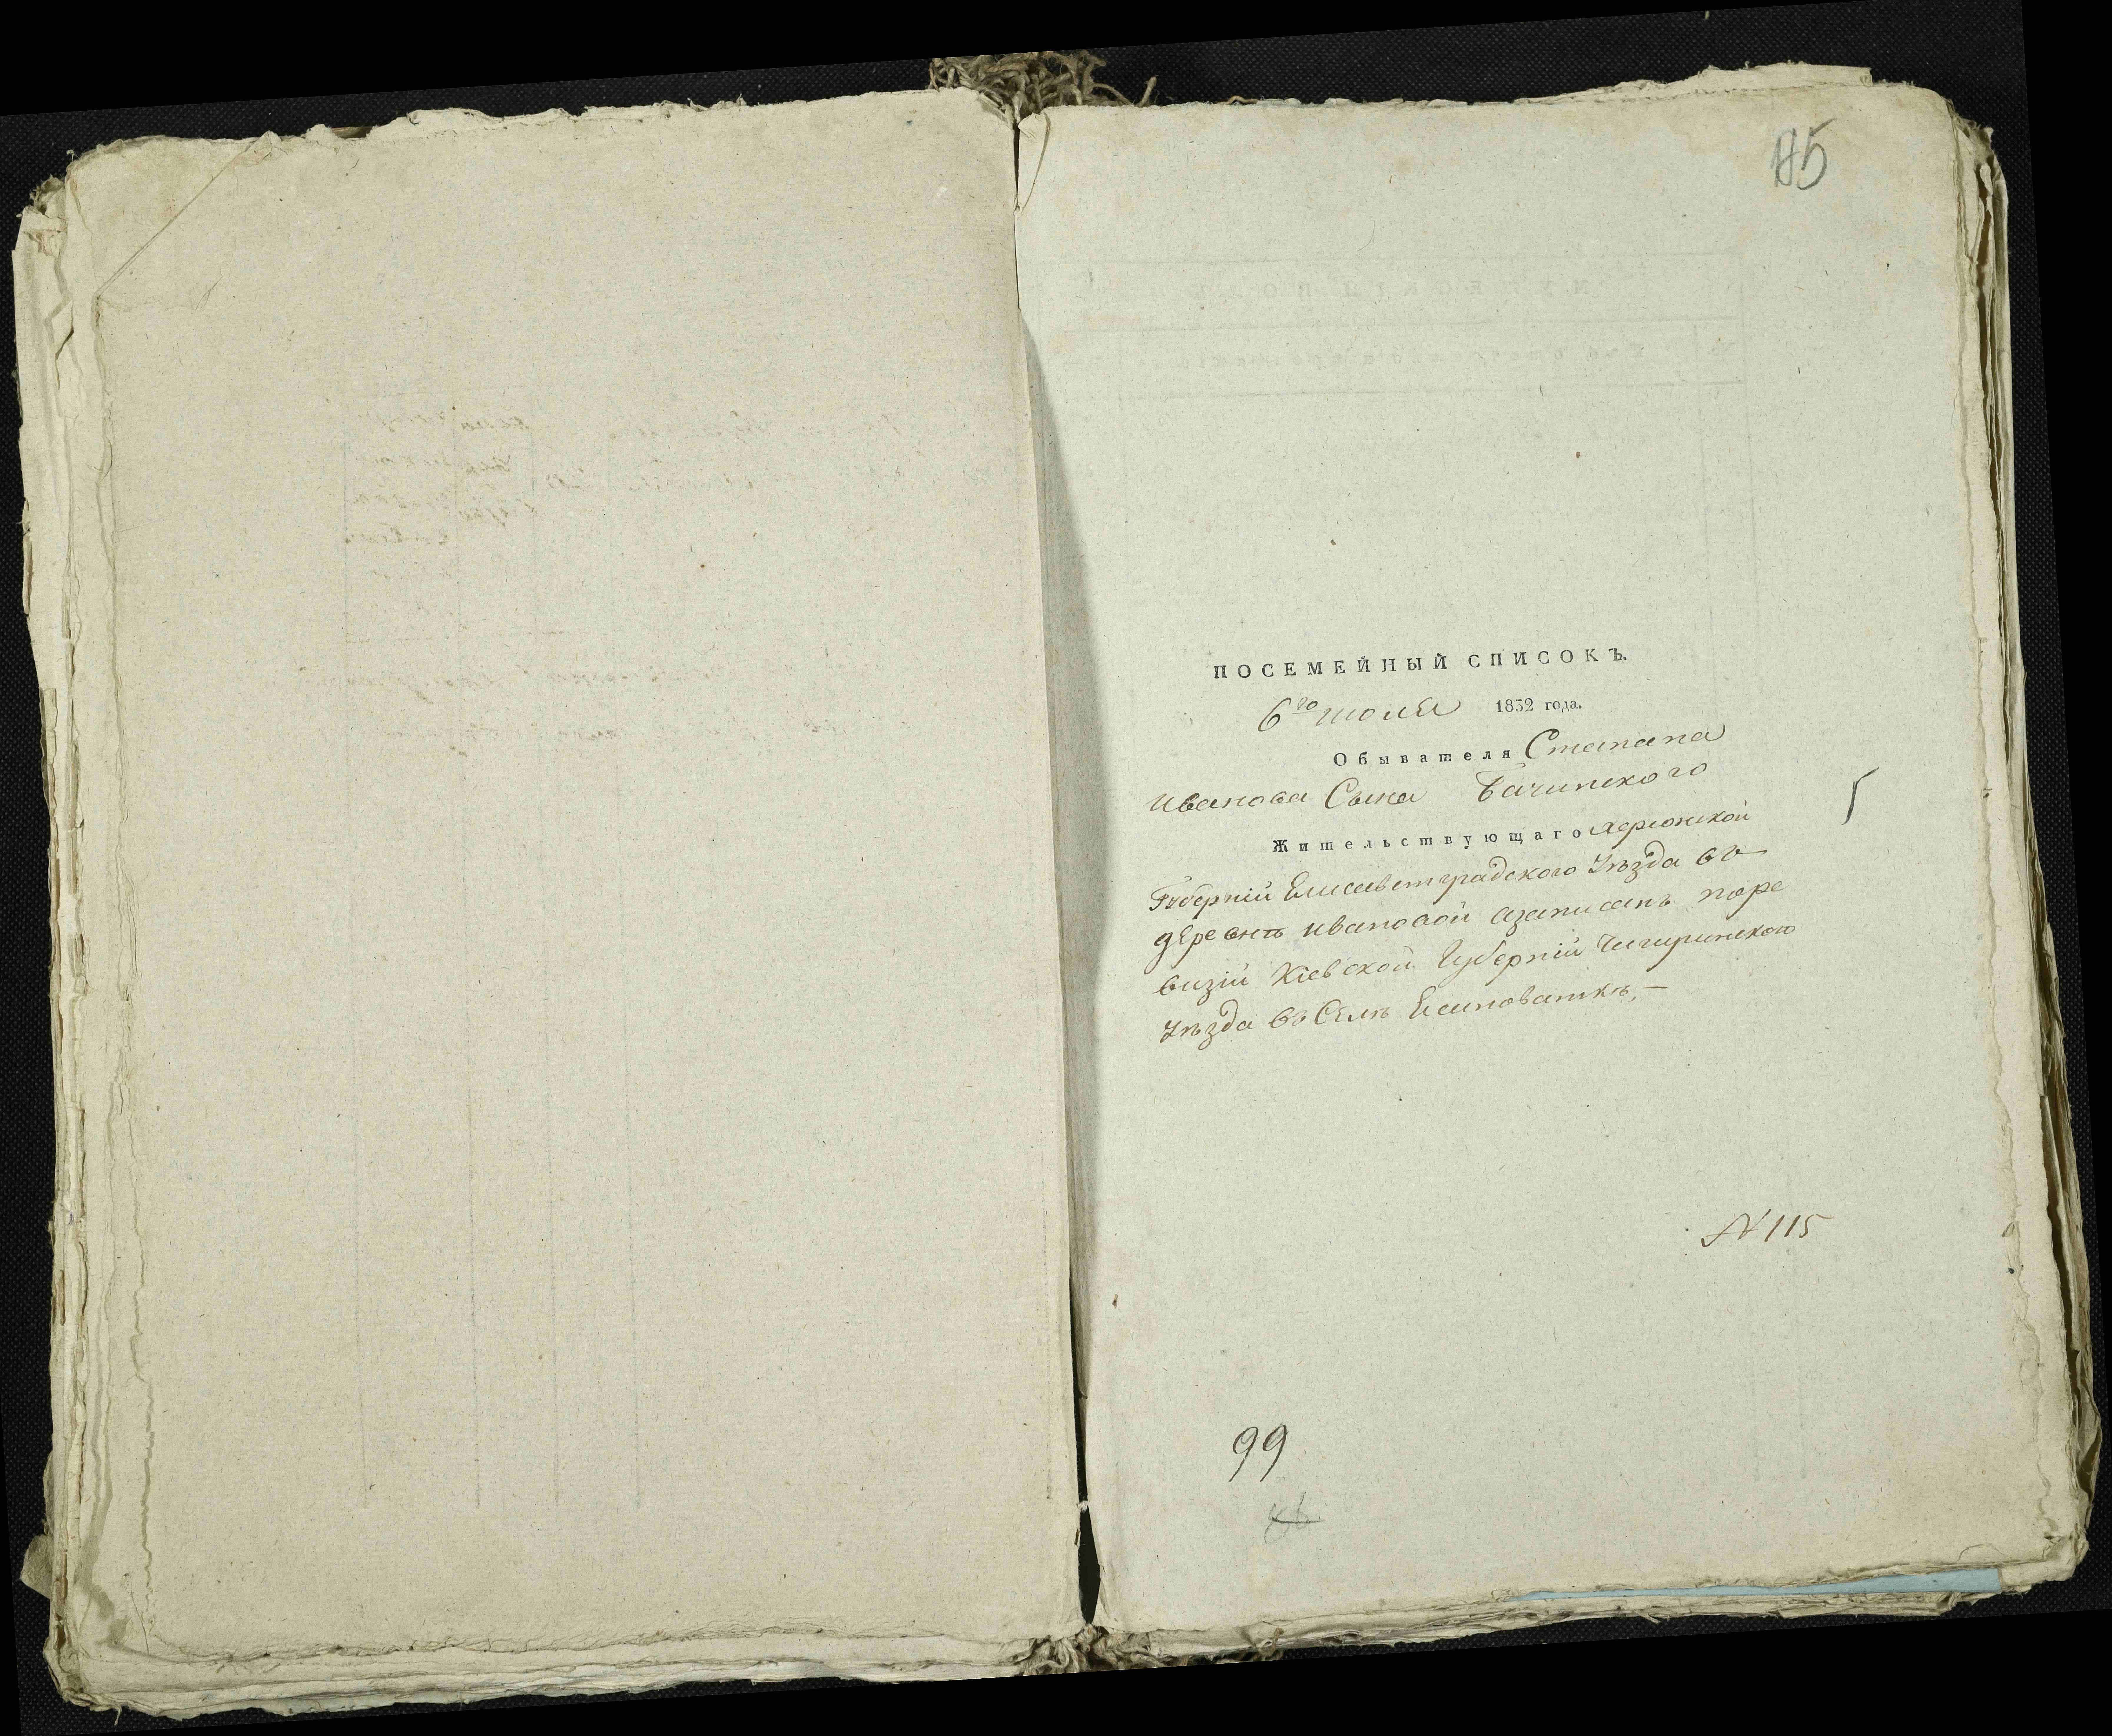 115
ПОСЕМЕЙНЫЙ СПИСОКЪ.
6го июля 1832 года.
Обывателя Степана
иванова Сына Бачинского
Жительствующаго херсонской
Губерніи Елисаветградского Уѣзда въ
деревнѣ ивановой азаписанъ поре
визіи Кіевской Губерніи Чигиринского
Уѣзда въ Селѣ Еситоваткѣ,—
N 115
99